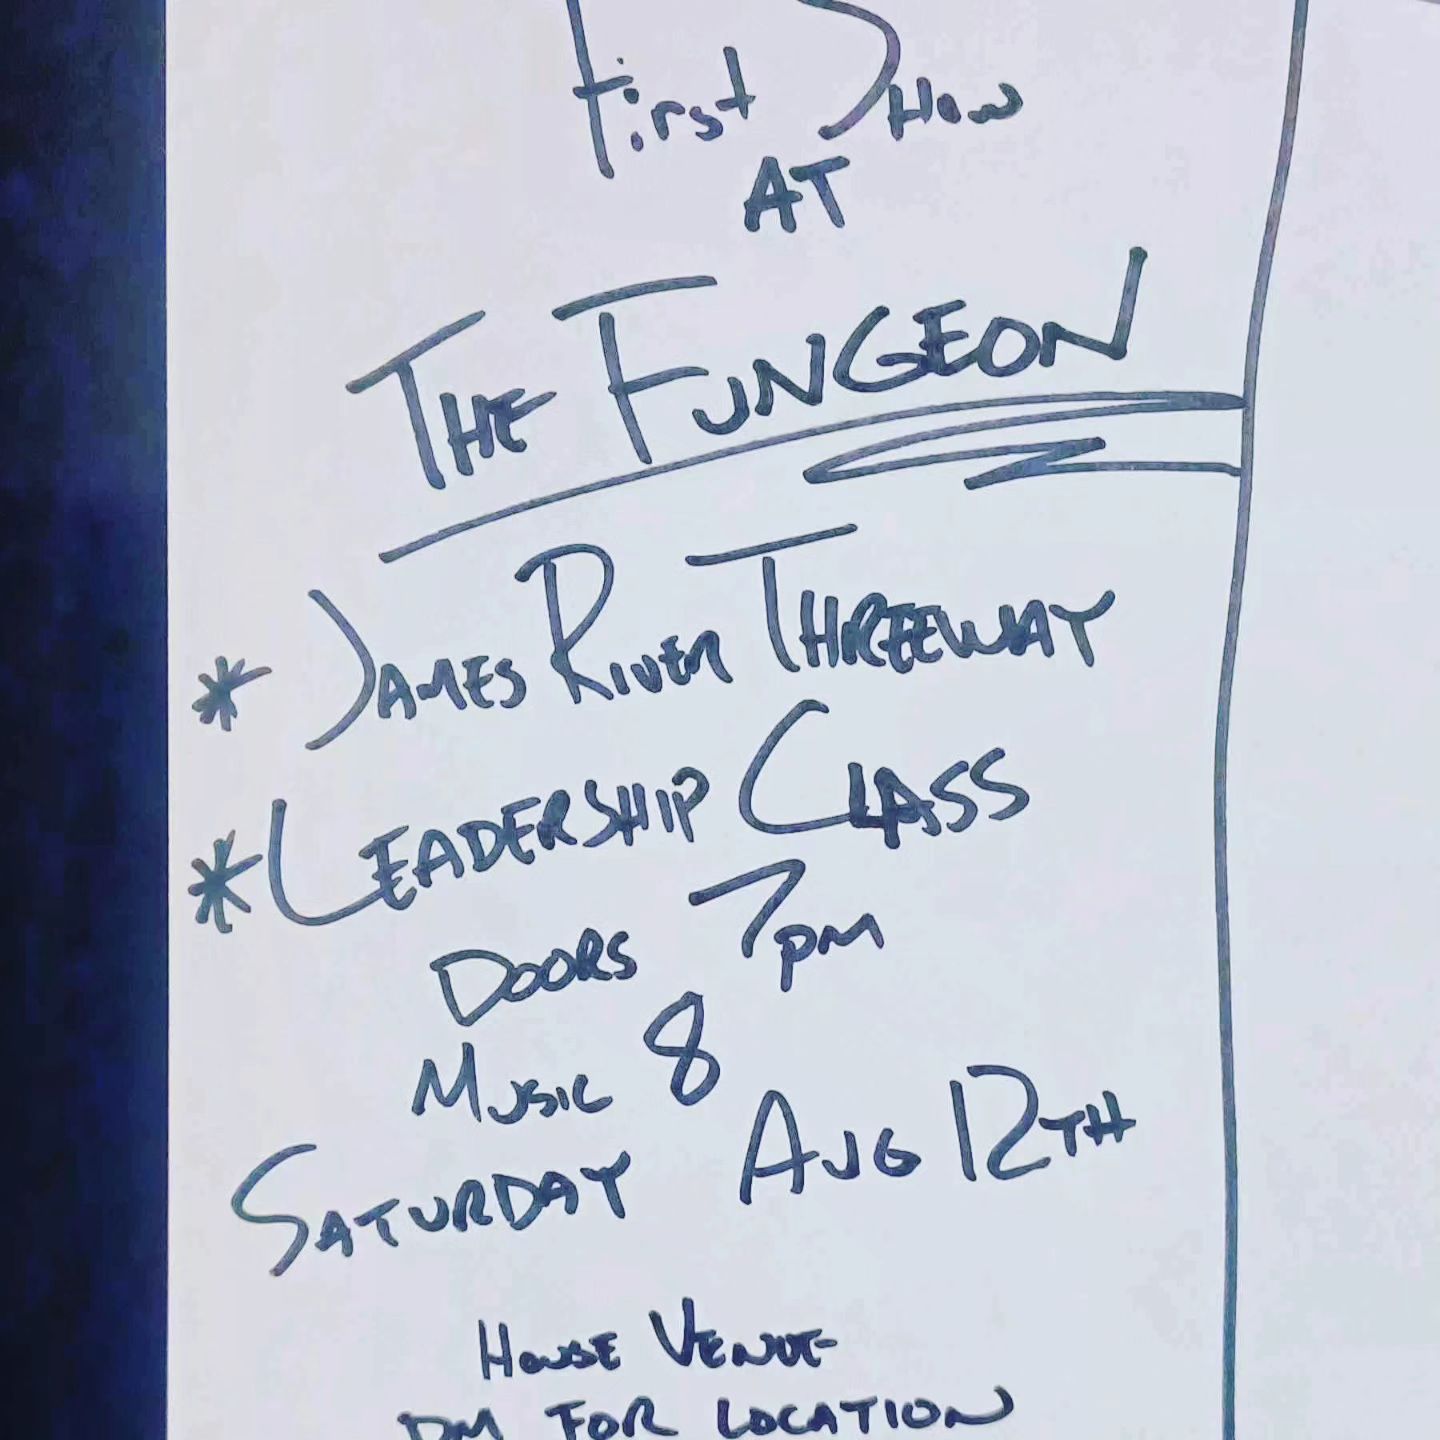 First Show
AT
THE FUNGEON
* JAMES RIVER THREEWAY
* LEADERSHIP CLASS
DOORS 7pm
MUSIC 8
SATURDAY AUG 12TH
HOUSE VENUE-
DM FOR LOCATION